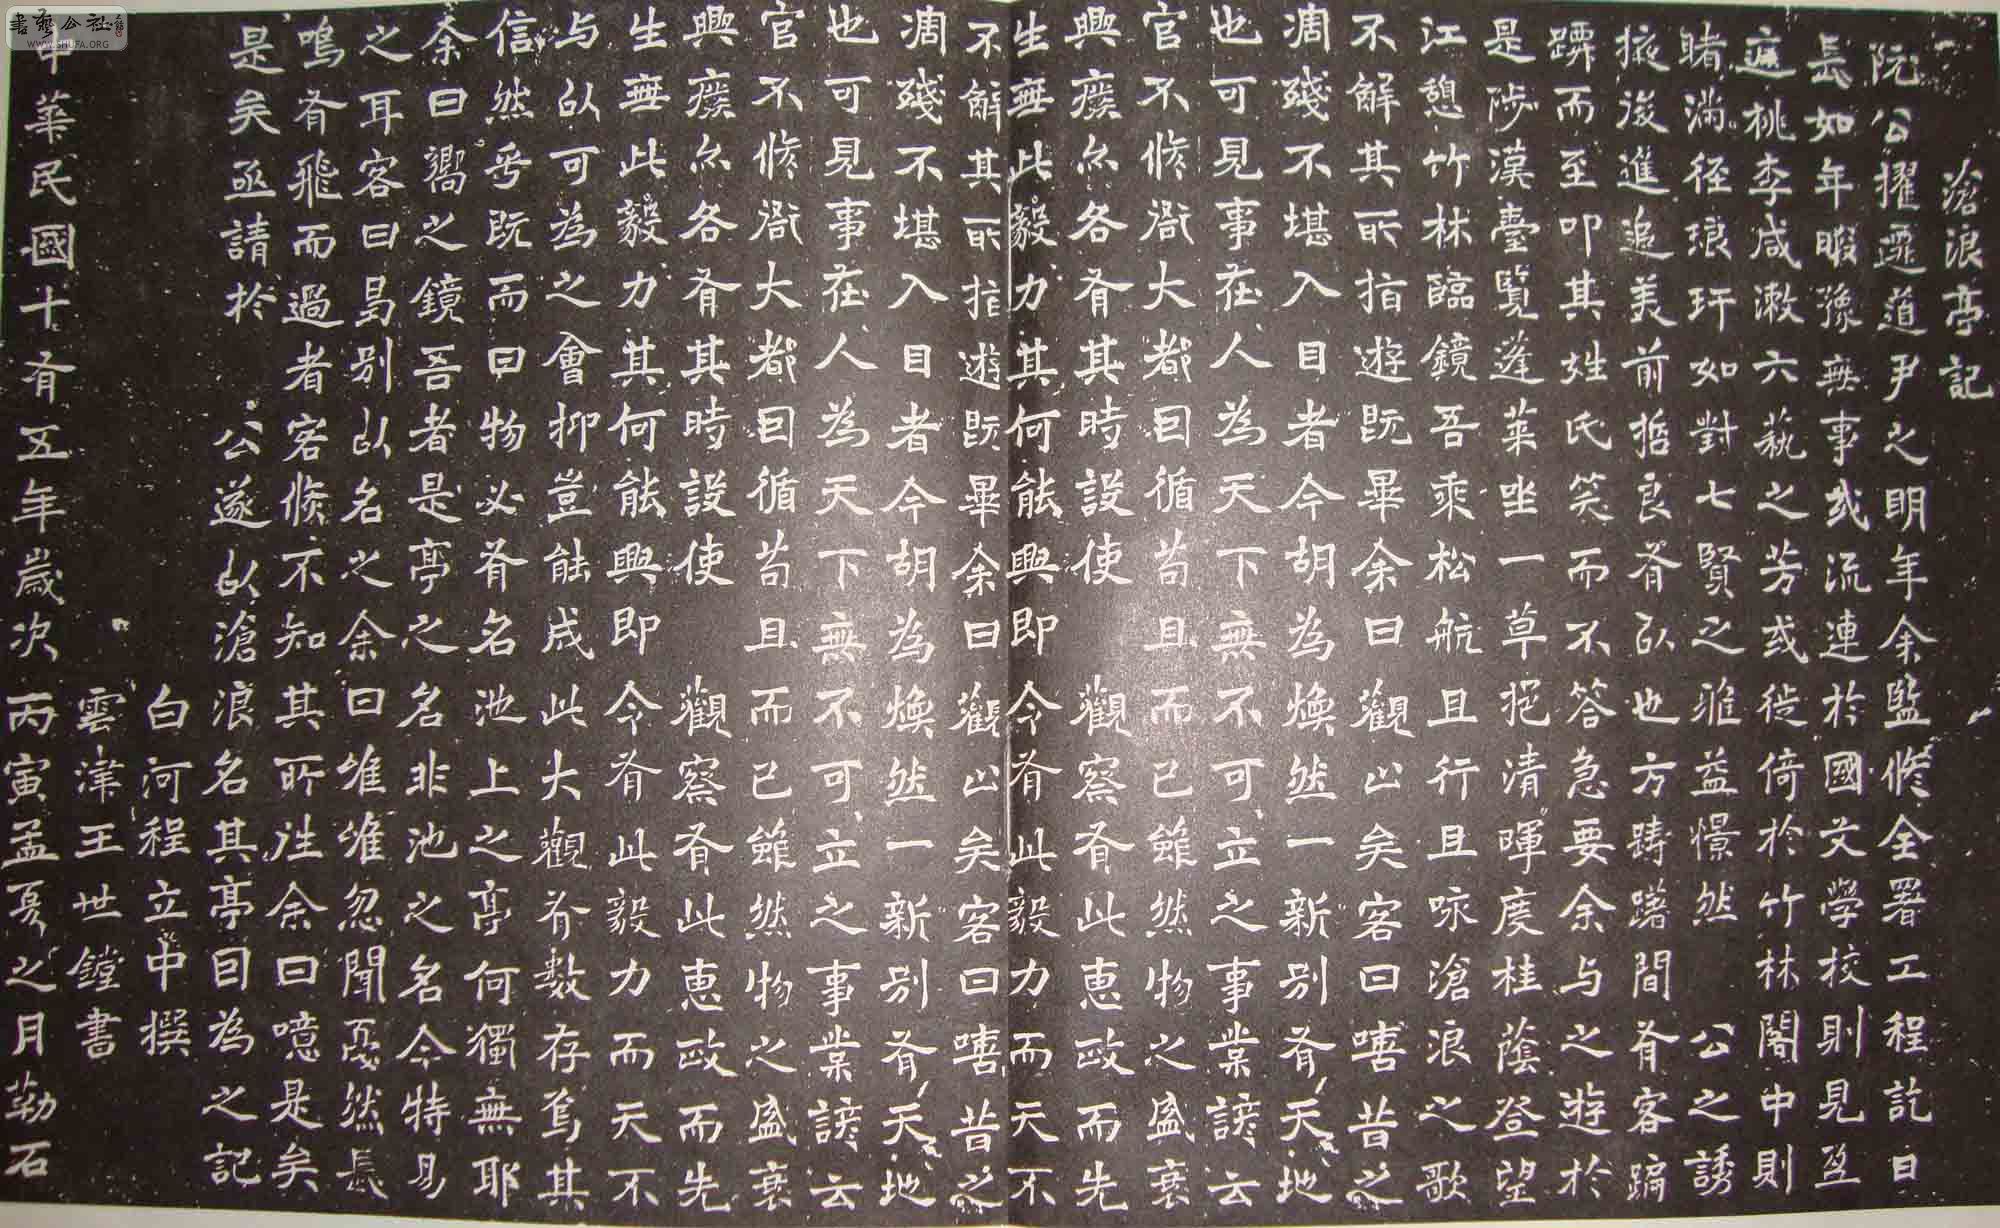 滄浪亭記
阮公擢遷道尹之明年余監修全署工程訖日
長如年暇豫無事或流連於國文學校則見盈
庭桃李咸漱六藝之芳或徙倚於竹林閣中則
睹滿徑琅玕如對七賢之雅益憬然 公之誘
掖後進追美前哲良有以也方躊躇間有客蹁
躋而至叩其姓氏笑而不答急要余与之遊於
是陟漢臺覽蓬萊坐一草挹清暉度桂蔭登望
江憩竹林臨鏡吾乘松航且行且咏滄浪之歌
不解其所指遊既畢余曰觀止矣客曰嘻昔之
凋殘不堪入目者今胡為煥然一新別有天地
也可見事在人為天下無不可立之事業諺云
官不修衙大都因循苟且而已雖然物之盛衰
興廢亦各有其時設使 觀察有此惠政而先
生無此毅力其何能興即 令有此毅力而天不
不解其所指遊既畢余曰觀止矣客曰嘻昔之
凋殘不堪入目者今胡為煥然一新別有天地
也可見事在人為天下無不可立之事業諺云
官不修衙大都因循苟且而已雖然物之盛衰
興廢亦各有其時設使 觀察有此惠政而先
生無此毅力其何能興即 令有此毅力而天不
与以可為之會抑豈能成此大觀有數存焉其
信然乎既而曰物必有名池上之亭何獨無耶
余曰嚮之鏡吾者是亭之名非池之名今特易
之耳客曰曷別以名之余曰唯唯忽聞戛然長
鳴有飛而過者客倏不知其所往余曰噫是矣
是矣亟請於 公遂以滄浪名其亭因為之記
白河程立中撰
雲津王世鏜書
中華民國十有五年歲次丙寅孟夏之月勒石
書藝公社
WWW.SHUFA.ORG